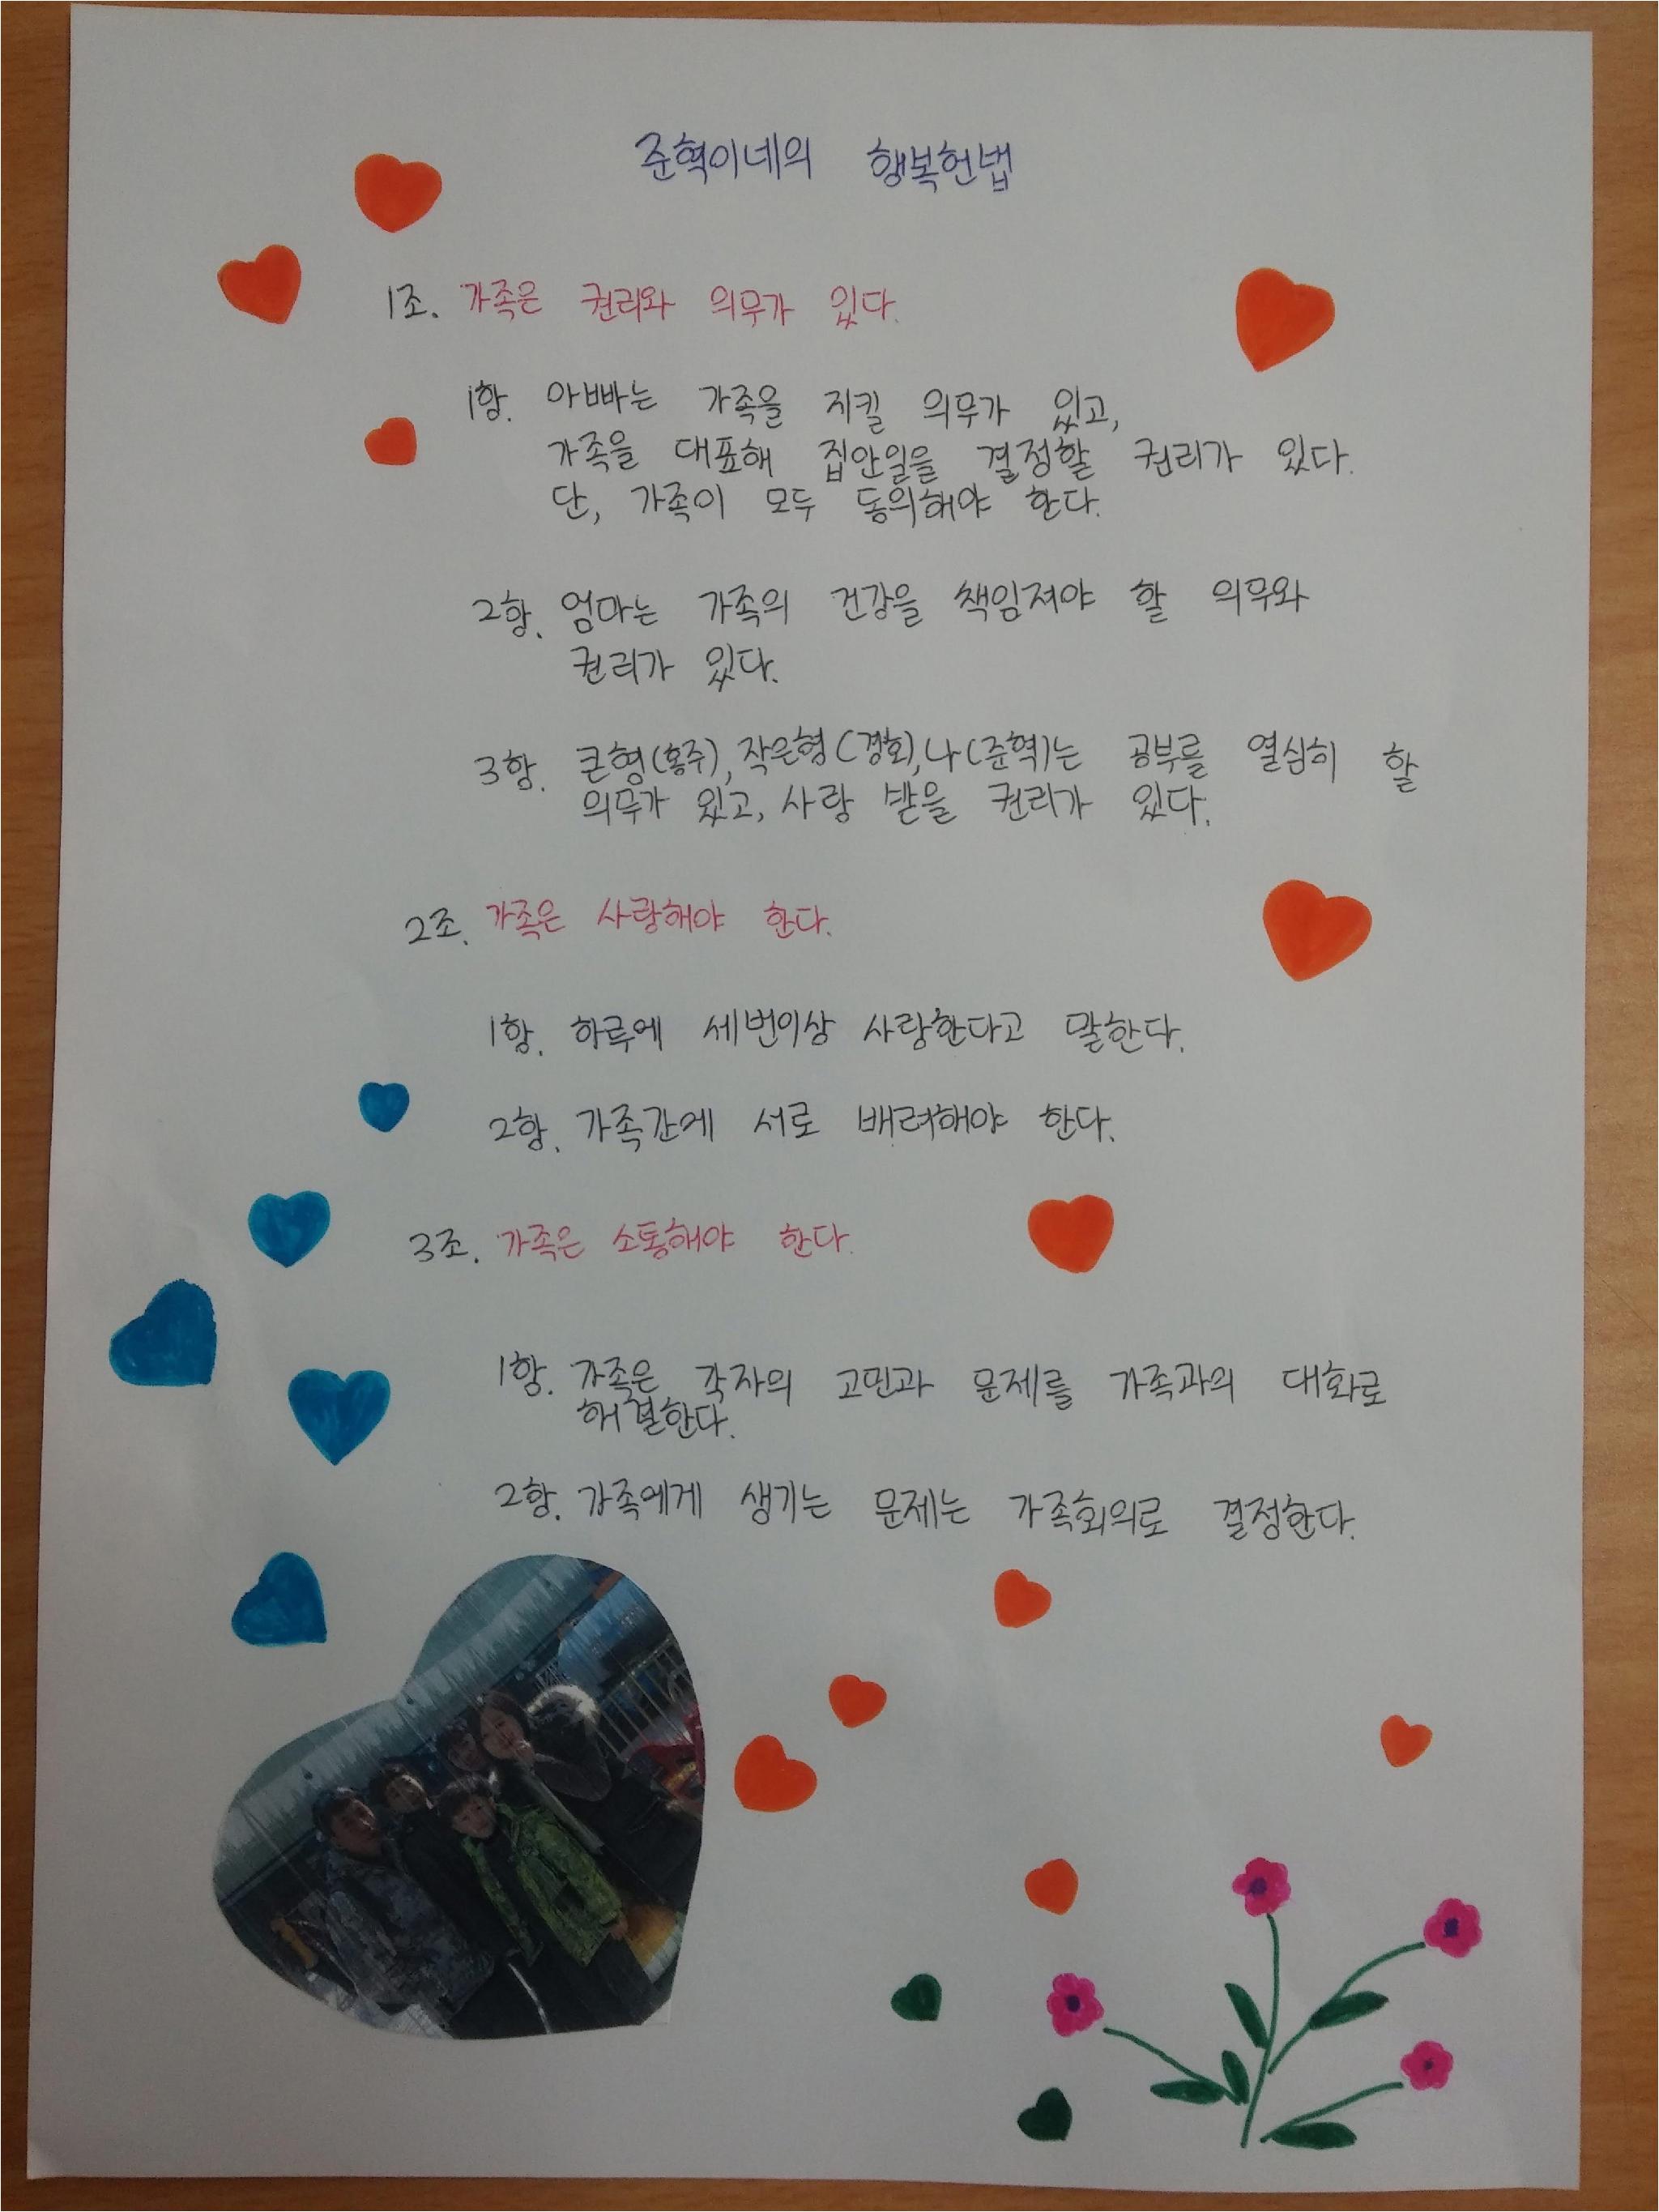 준혁이네의 행복헌법
1조. 가족은 권리와 의무가 있다.
1항. 아빠는 가족을 지킬 의무가 있고,
가족을 대표해 집안일을 결정할 권리가 있다.
단, 가족이 모두 동의해야 한다.
2항. 엄마는 가족의 건강을 책임져야 할 의무와
권리가 있다.
3항. 큰형(홍주), 작은형(경회), 나(준혁)는 공부를 열심히 할
의무가 있고, 사랑 받을 권리가 있다.
2조. 가족은 사랑해야 한다.
1항. 하루에 세번이상 사랑한다고 말한다.
2항. 가족간에 서로 배려해야 한다.
3조. 가족은 소통해야 한다.
1항. 가족은 각자의 고민과 문제를 가족과의 대화로
해결한다.
2항. 가족에게 생기는 문제는 가족회의로 결정한다.